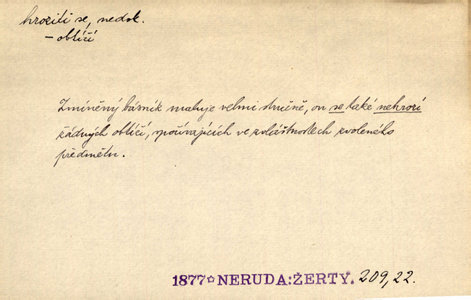 hroziti se, nedok.
– obtíží
Zmíněný básník maluje velmi stručně, on se také nehrozí
žádných obtíží, spočívajících ve zvláštnostech zvoleného
předmětu.
1877☆NERUDA:ŽERTY. 209,22.